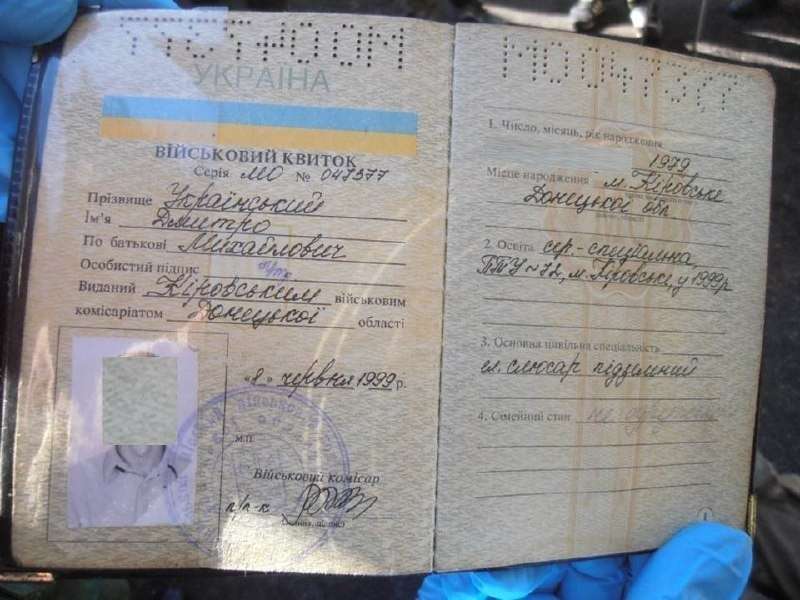 УКРАЇНА
ВІЙСЬКОВИЙ КВИТОК
Серія МО № 047377
Прізвище Український
Ім'я Дмитро
По батькові Михайлович
Особистий підпис
Виданий Кіровським військовим
комісаріатом Донецької області
«8» червня 1999 р.
М.П.
Військовий комісар
п/п-к
МО 047377
1. Число, місяць, рік народження
1979
Місце народження м. Кіровське
Донецької обл.
2. Освіта сер.-спеціальна,
ПТУ-72, м. Кіровське, у 1999р
3. Основна цивільна спеціальність
ел. слюсар підземний
4. Сімейний стан
1